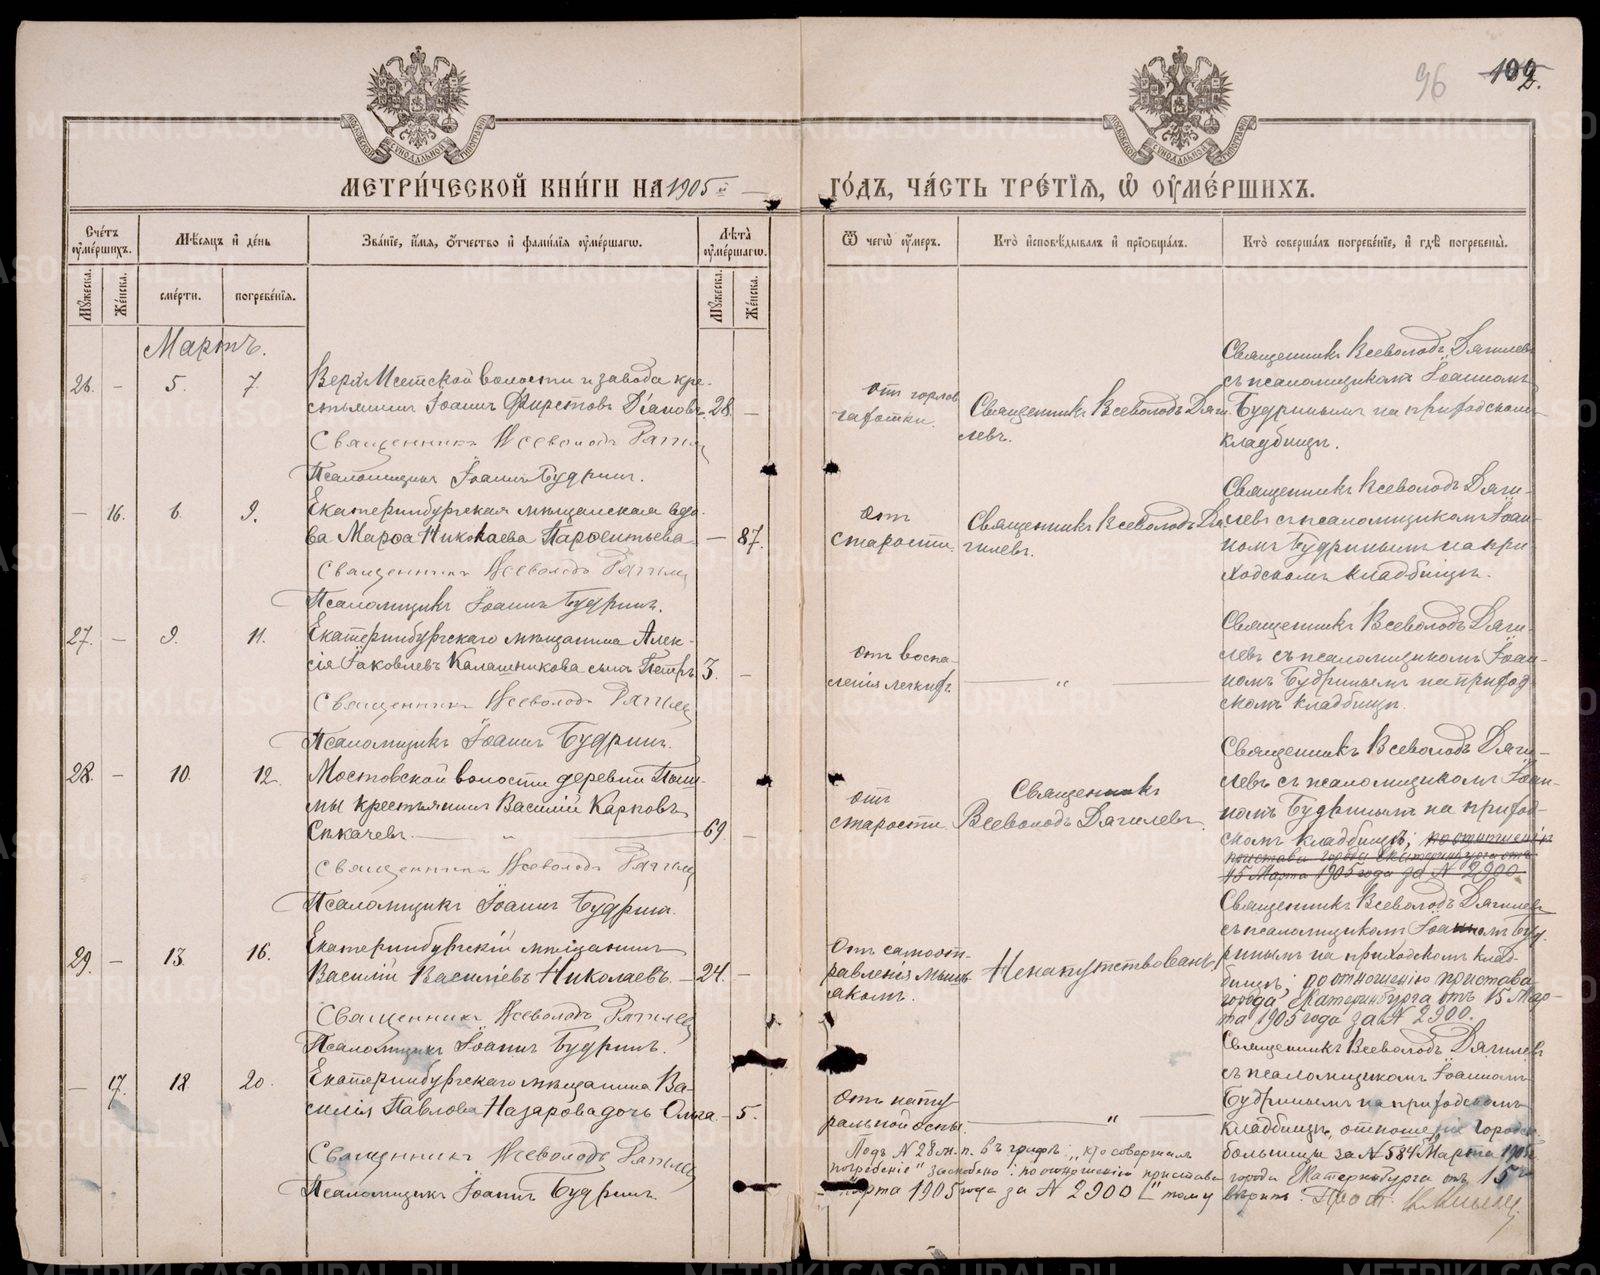 96 102.
МЕТРИ́ЧЕСКОЙ КНИ́ГИ НА 1905й ГО́ДЪ, ЧА́СТЬ ТРЕ́ТІѦ, Ѡ ОУМЕ́РШИХЪ.
Сче́тъ оуме́ршихъ.
Мѣ́сяцъ и де́нь
Зва́ніе, и́мя, о́тчество и фами́лія оуме́ршагѡ.
Лѣ́та оуме́ршагѡ.
Ѿ чегѡ̀ оу́меръ.
Кто̀ исповѣ́дывалъ и пріобща́лъ.
Кто̀ соверша́лъ погребе́ніе, и гдѣ̀ погребены̀.
Му́жеска.
Же́нска.
сме́рти.
погребе́нія.
Му́жеска.
Же́нска.
Мартъ.
26. – 5. 7.
Верхъ-Исетской волости и завода кре-
стьянинъ Іоаннъ Фирстовъ Діановъ. 28. –
Священникъ Всеволодъ Дягилевъ
Псаломщикъ Іоаннъ Будринъ.
отъ горлов.
чахотки.
Священникъ Всеволодъ Дяги-
левъ.
Священникъ Всеволодъ Дягилевъ
съ псаломщикомъ Іоанномъ
Будринымъ на приходскомъ
кладбищѣ.
– 16. 6. 9.
Екатеринбургская мѣщанская вдо-
ва Марѳа Николаева Парѳентьева – 87.
Священникъ Всеволодъ Дягилевъ
Псаломщикъ Іоаннъ Будринъ.
отъ
старости.
Священникъ Всеволодъ Дя-
гилевъ.
Священникъ Всеволодъ Дяги-
левъ съ псаломщикомъ Іоан-
номъ Будринымъ на при-
ходскомъ кладбищѣ.
27. – 9. 11.
Екатеринбургскаго мѣщанина Алек-
сія Іаковлевъ Калашникова сынъ Петръ 3. –
Священникъ Всеволодъ Дягилевъ
Псаломщикъ Іоаннъ Будринъ.
отъ воспа-
ленія легкихъ.
– " –
Священникъ Всеволодъ Дяги-
левъ съ псаломщикомъ Іоан-
номъ Будринымъ на приход-
скомъ кладбищѣ.
28. – 10. 12.
Мостовской волости деревни Пыш-
мы крестьянинъ Василій Карповъ
Скачевъ. – " – 69. –
Священникъ Всеволодъ Дягилевъ
Псаломщикъ Іоаннъ Будринъ.
отъ
старости
Священникъ
Всеволодъ Дягилевъ.
Священникъ Всеволодъ Дяги-
левъ съ псаломщикомъ Іоан-
номъ Будринымъ на приход-
скомъ кладбищѣ; по отношенію
пристава города Екатеринбурга отъ
15 Марта 1905 года за N 2900.
29. – 13. 16.
Екатеринбургскій мѣщанинъ
Василій Василіевъ Николаевъ. – 24. –
Священникъ Всеволодъ Дягилевъ
Псаломщикъ Іоаннъ Будринъ.
Отъ самоот-
равленія мышь-
якомъ.
Ненапутствованъ.
Священникъ Всеволодъ Дягилевъ
съ псаломщикомъ Іоанномъ Буд-
ринымъ на приходскомъ клад-
бищѣ; по отношенію пристава
города Екатеринбурга отъ 15 Мар-
та 1905 года за N 2900.
– 17. 18 20.
Екатеринбургскаго мѣщанина Ва-
силія Павлова Назарова дочь Ольга. – 5.
Священникъ Всеволодъ Дягилевъ
Псаломщикъ Іоаннъ Будринъ.
отъ нату
ральной оспы.
– " –
Священникъ Всеволодъ Дягилевъ
съ псаломщикомъ Іоанномъ
Будринымъ на приходскомъ
кладбищѣ, отношеніе городск.
больницы за N 584 Марта 1905
Подъ N 28 м. п. въ графѣ: „кто совершалъ
погребеніе" заскоблено: по отношенію пристава города Екатеринбурга отъ 15го
Марта 1905 года за N 2900" тому вѣрить. Прот.